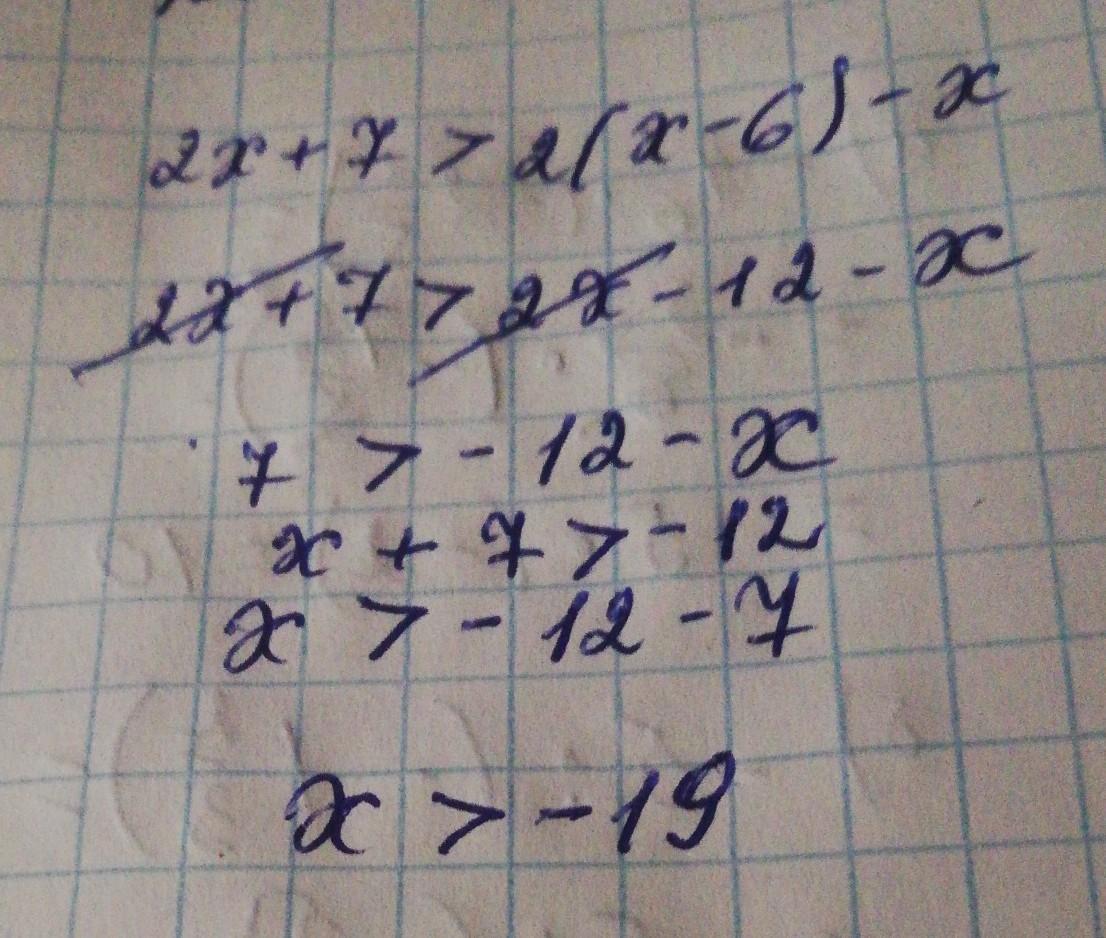 2x + 7 > 2(x - 6) - x
2x + 7 > 2x - 12 - x
7 > - 12 - x
x + 7 > - 12
x > - 12 - 7
x > - 19